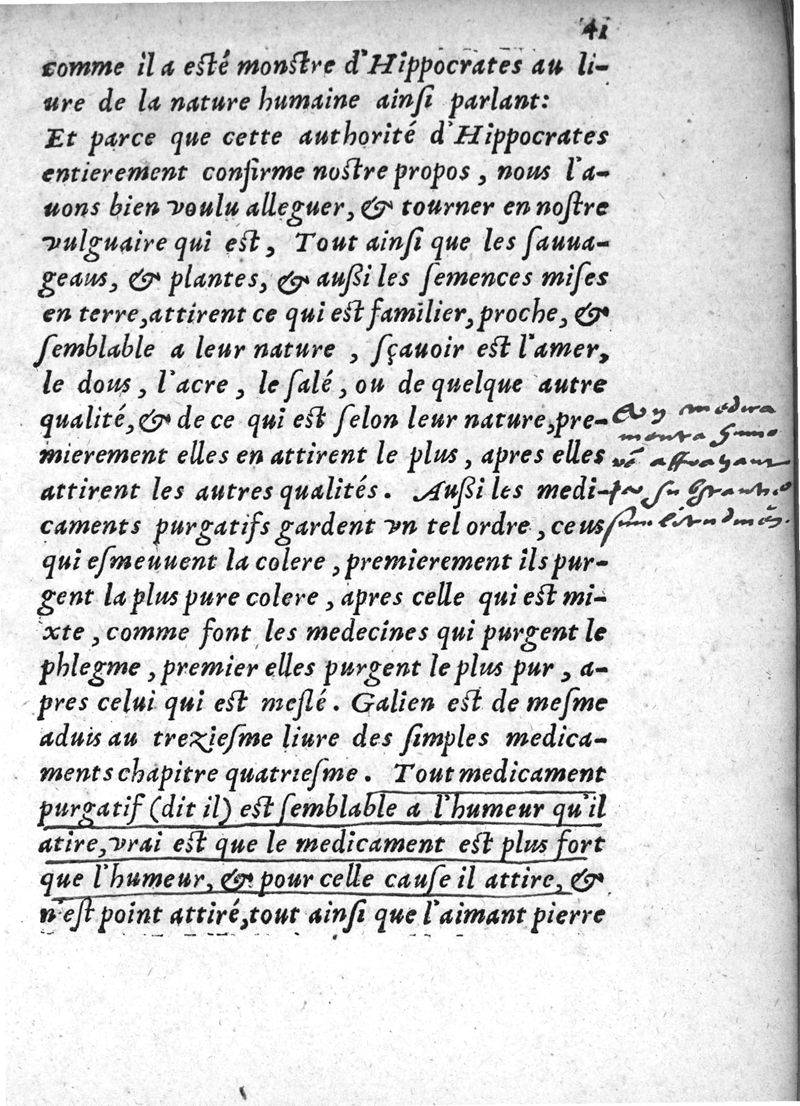 41
comme il a esté monstre d'Hippocrates au li-
ure de la nature humaine ainſi parlant:
Et parce que cette authorité d'Hippocrates
entierement confirme noſtre propos, nous l'a-
uons bien voulu alleguer, & tourner en noſtre
vulguaire qui est, Tout ainſi que les ſauua-
geaus, & plantes, & außi les ſemences miſes
en terre, attirent ce qui est familier, proche, &
ſemblable a leur nature, ſçauoir est l'amer,
le dous, l'acre, le ſalé, ou de quelque autre
qualité, & de ce qui est ſelon leur nature, pre-
mierement elles en attirent le plus, apres elles
attirent les autres qualités. Außi les medi-
caments purgatifs gardent vn tel ordre, ceus
qui eſmeuuent la colere, premierement ils pur-
gent la plus pure colere, apres celle qui est mi-
xte, comme font les medecines qui purgent le
phlegme, premier elles purgent le plus pur, a-
pres celui qui est meſlé. Galien est de meſme
aduis au trezieſme liure des ſimples medica-
ments chapitre quatrieſme. Tout medicament
purgatif (dit il) est ſemblable a l'humeur qu'il
atire, vrai est que le medicament est plus fort
que l'humeur, & pour celle cauſe il attire, &
n'eſt point attiré, tout ainſi que l'aimant pierre